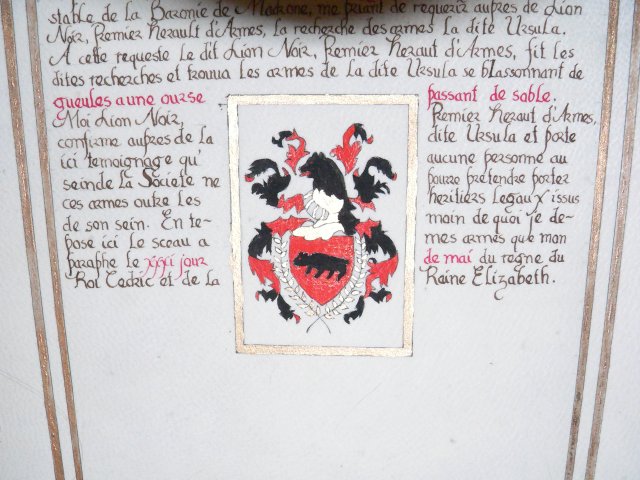 stable, de la Baronie de Madrone, me priant de requerir aupres de Lion
Noir, Premier Herault d'Armes, la recherche des armes la dite Ursula.
A cette requeste le dit Lion Noir, Premier Heraut d'Armes, fit les
dites recherches et trouua les armes de la dite Ursula se blassonnant de
gueules a une ourse passant de sable.
Moi Lion Noir, Premier Heraut d'Armes,
confirme aupres de la dite Ursula et porte
ici temoignage qu' aucune personne au
sein de la Societe ne pourro pretendre porter
ces armes outre les heritiers legaux issus
de son sein. En te- moin de quoi je de-
pose ici le sceau a mes armes que mon
paraphe le xxxi jour de mai du regne du
Roi Cedric et de la Raine Elizabeth.